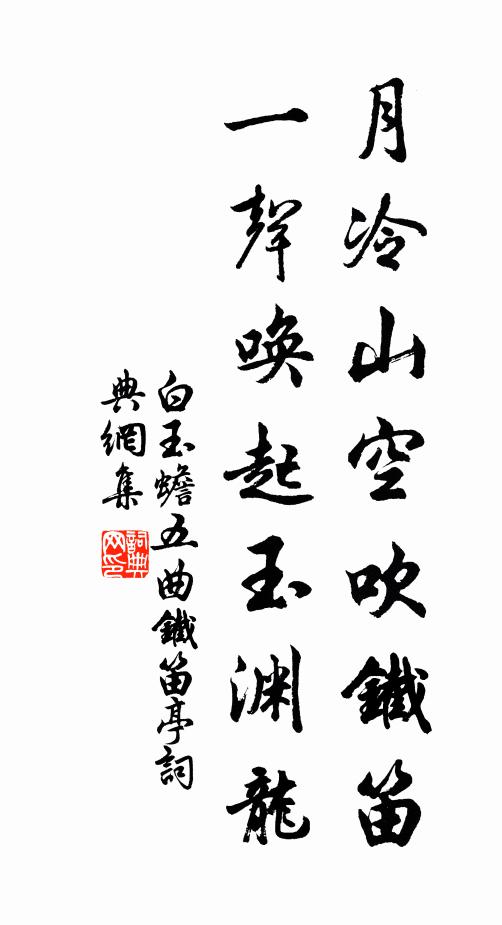 月冷山空吹鐵笛
一聲喚起玉渊龍
白玉蟾五曲鐵笛亭詞
典網集
詞典
网印